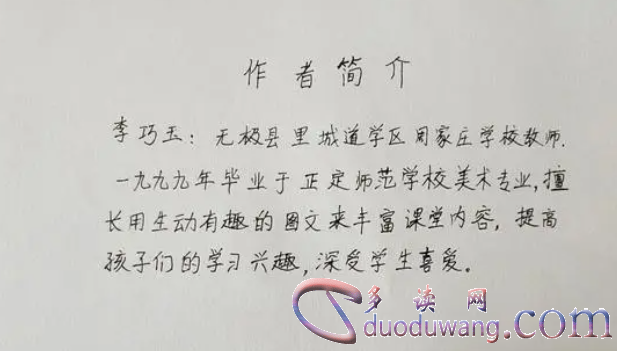 作者简介
李巧玉：无极县里城道学区周家庄学校教师.
一九九九年毕业于正定师范学校美术专业,擅
长用生动有趣的图文来丰富课堂内容，提高
孩子们的学习兴趣,深受学生喜爱。
多读网
duoduwang.com